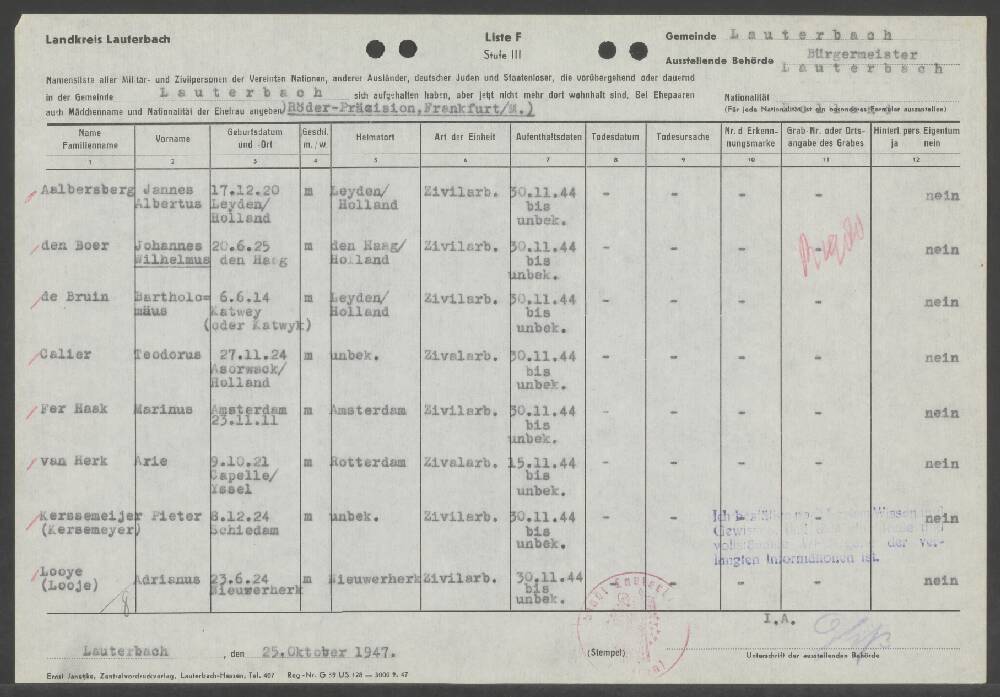 Landkreis Lauterbach
Liste F
Stufe III
Gemeinde Lauterbach
Ausstellende Behörde Bürgermeister
Lauterbach
Namensliste aller Militär- und Zivilpersonen der Vereinten Nationen, anderer Ausländer, deutscher Juden und Staatenloser, die vorübergehend oder dauernd
in der Gemeinde Lauterbach sich aufgehalten haben, aber jetzt nicht mehr dort wohnhaft sind. Bei Ehepaaren
auch Mädchenname und Nationalität der Ehefrau angeben) Röder-Präzision, Frankfurt/M.)
Nationalität
(Für jede Nationalität ist ein besonderes Formular auszustellen)
Name Familienname | Vorname | Geburtsdatum und -Ort | Geschl. m. / w. | Heimatort | Art der Einheit | Aufenthaltsdaten | Todesdatum | Todesursache | Nr. d. Erkennungsmarke | Grab-Nr. oder Ortsangabe des Grabes | Hinterl. pers. Eigentum ja nein
1 2 3 4 5 6 7 8 9 10 11 12
Aalbersberg Jannes 17.12.20 m Leyden/ Zivilarb. 30.11.44 - - - - nein
Albertus Leyden/ Holland bis
Holland unbek.
den Boer Johannes 20.6.25 m den Haag/ Zivilarb. 30.11.44 - - - - nein
Wilhelmus den Haag Holland bis
unbek.
de Bruin Bartholo= 6.6.14 m Leyden/ Zivilarb. 30.11.44 - - - - nein
mäus Katwey Holland bis
(oder Katwyk) unbek.
Calier Teodorus 27.11.24 m unbek. Zivalarb. 30.11.44 - - - - nein
Asorwack/ bis
Holland unbek.
Fer Haak Marinus Amsterdam m Amsterdam Zivilarb. 30.11.44 - - - - nein
23.11.11 bis
unbek.
van Herk Arie 9.10.21 m Rotterdam Zivalarb. 15.11.44 - - - - nein
Capelle/ bis
Yssel unbek.
Kerssemeijer Pieter 8.12.24 m unbek. Zivilarb. 30.11.44 - - - - nein
(Kersemeyer) Schiedam bis
unbek.
Looye Adrianus 23.6.24 m Nieuwerherk Zivilarb. 30.11.44 - - - - nein
(Looje) Nieuwerherk bis
unbek.
8
der ver-
langten Informationen ist.
I.A.
Lauterbach, den 25.Oktober 1947.
(Stempel)
Unterschrift der ausstellenden Behörde
Ernst Janetzke, Zentralvordruckverlag, Lauterbach-Hessen, Tel. 407 Reg-Nr. G 59 US 128 — 3000 9. 47